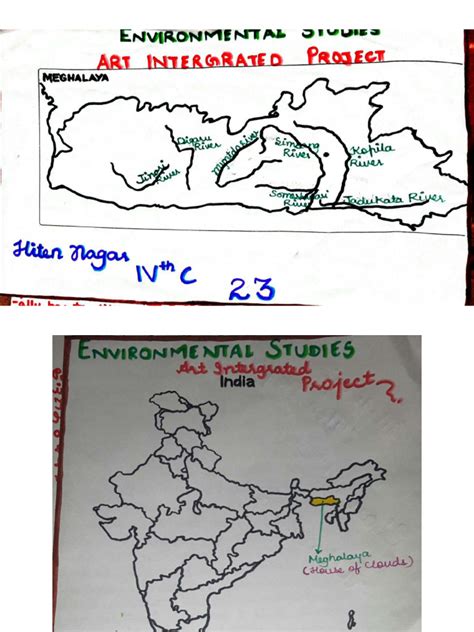 ENVIRONMENTAL STUDIES
ART INTERGRATED PROJECT
MEGHALAYA
Digaru River
Simsang River
Kopila River
Jinari River
Jadukata River
Hiten Nagar
IVth C
23
ENVIRONMENTAL STUDIES
Art Intergrated
India
Project
Meghalaya
(House of Clouds)